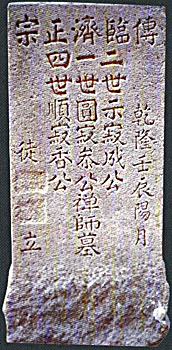 傳 乾隆壬辰陽月
臨二世示寂成公
濟一世圓寂叅公禪師墓
正四世順寂香公
宗 徒 立